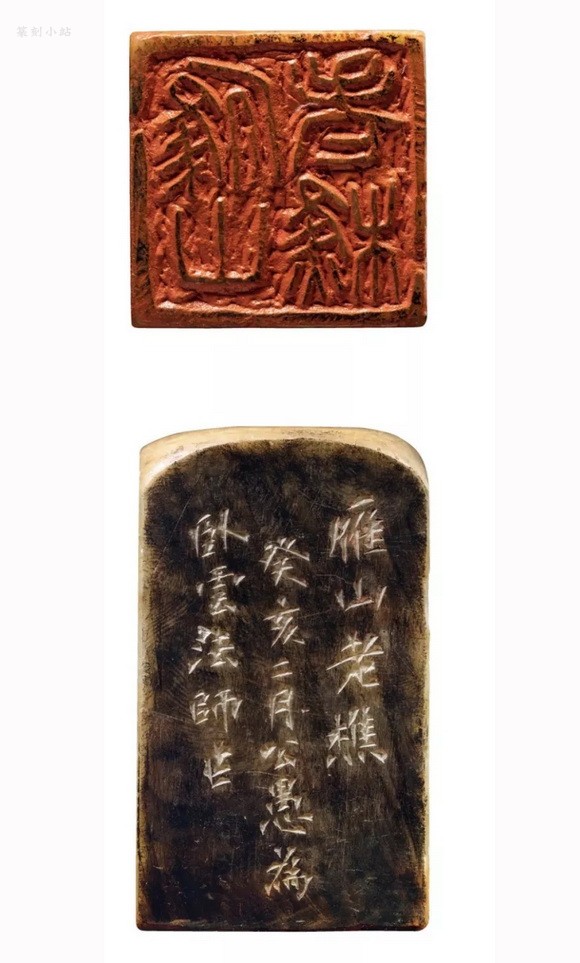 篆刻小站
雁山
老樵
雁山老樵
癸亥二月公愚為
臥雲法師